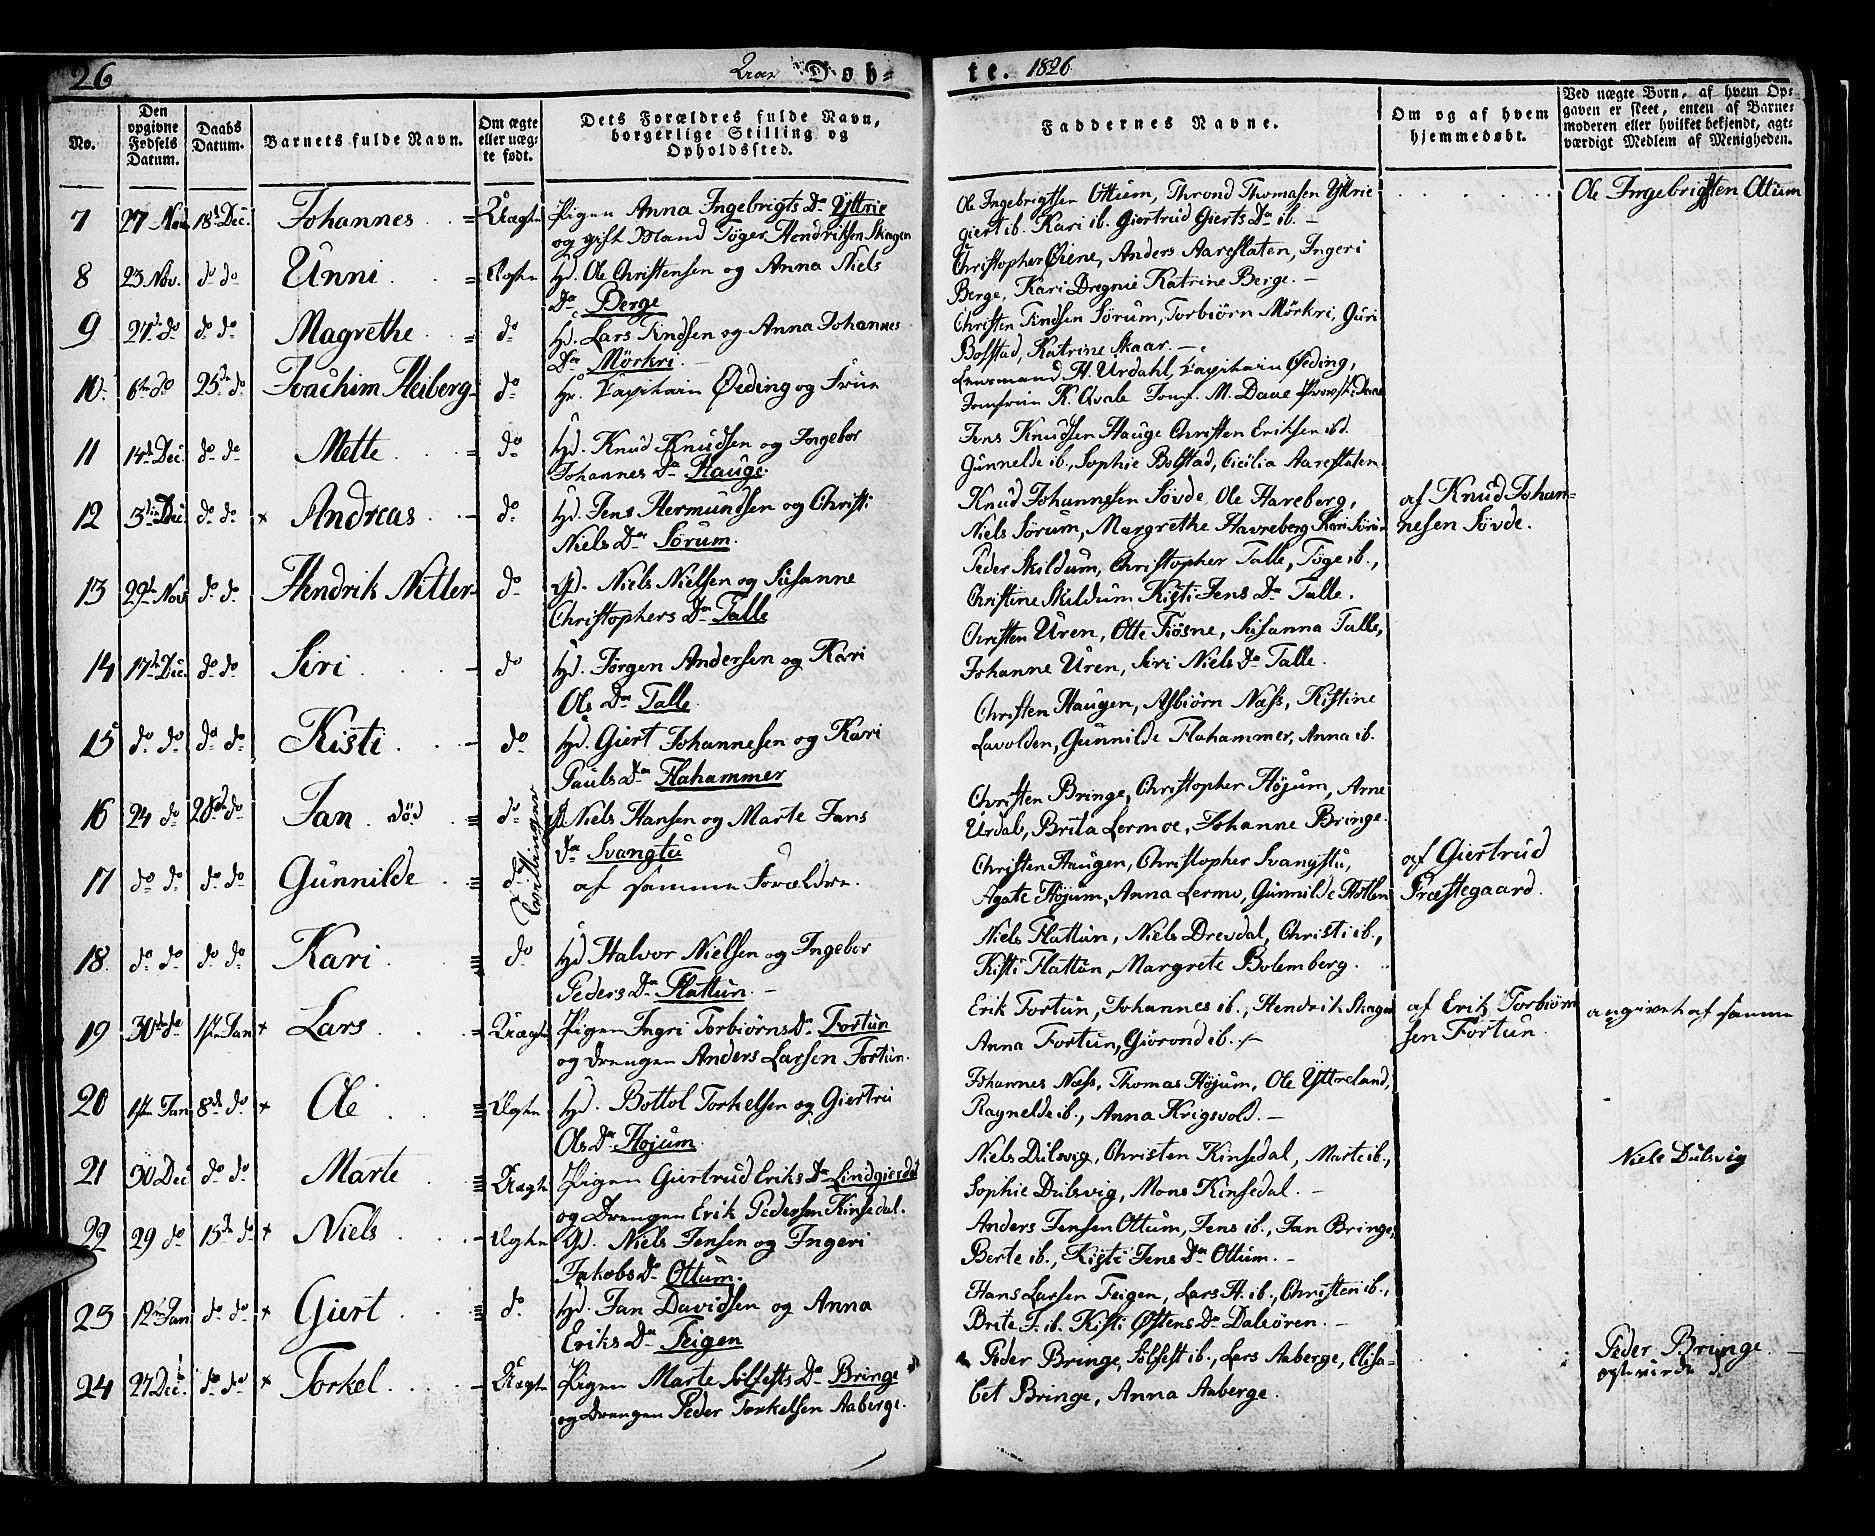 26 Døb=
te. 1826
No.
Den opgivne Fødsels Datum.
Daabs Datum.
Barnets fulde Navn.
Om ægte eller uæg- te født.
Dets Forældres fulde Navn, borgerlige Stilling og Opholdssted.
Faddernes Navne.
Om og af hvem hjemmedøbt.
Ved uægte Born, af hvem Op- gaven er skeet, enten af Barne- moderen eller hvilket bekjendt, agt- værdigt Medlem af Menigheden.
7 27 Nov. 18d Dec. Johannes Uægte Pigen Anna Ingebrigts Dr Yttrie
og gift Mand Töger Hendriksen Skagen
Ole Ingebrigtsen Ottum, Thrond Thomasen Yttrie
giert ib. Kari ib. Giertrud Gierts Dr ib. –
Ole Ingebrigtsen Otum
8 23 Nov. do do Unni Ægte Hd. Ole Christensen og Anna Niels
Dr Berge
Christopher Øiene, Anders Aareflaten, Ingeri
Berge, Kari Dregnie Katrine Berge. –
9 27de do do do Magrethe do Hd. Lars Findsen og Anna Johannes
Dr Mörkri
Christen Findsen Sörum, Torbiörn Mörkri, Guri
Bolstad, Katrine Skaar. –
10 6te do 25de do Joachim Heiberg do Hr. Kapitain Øeding og Frue
Lensmand H. Urdahl, Kapitain Øeding,
Jomfrue K. Qvale Jomf. M. Daae
11 14de Dec. do do Mette do Hd. Knud Knudsen og Ingebor
Johannes Dr Hauge.
Jens Knudsen Hauge Christen Eriksen ibd.
Gunnelde ib., Sophie Bolstad, Cicilia Aareflaten
12 3die Dec. do do × Andreas do Hd. Jens Hermundsen og Christi
Niels Dr Sørum.
Knud Johannesen Sövde, Ole Havreberg,
Niels Sørum, Margrethe Havreberg Kari Sörum
af Knud Johan-
nesen Sövde.
13 29de Nov. do do Hendrik Nitter do Gd. Niels Nielsen og Susanne
Christophers Dr Talle
Peder Skildum, Christopher Talle, Töge ib.,
Christine Skildum Kisti Jens Dr Talle.
14 17de Dec. do do Siri do Hd. Jörgen Andersen og Kari
Ols Dr Talle.
Christen Uren, Otte Fiösne, Susanna Talle,
Johanne Uren, Siri Niels Dr Talle.
15 do do do do Kisti do Hd. Giert Johannesen og Kari
Pauls Dr Flahammer
Christen Haugen, Asbiörn Næss, Kistine
Lavolden, Gunnilde Flahammer, Anna ib.
16 24 do 28de do Jan död do Niels Hansen og Marte Jans
Dr Svangtu
Tvillinger
Christen Bringe, Christopher Höjum, Arne
Urdal, Brita Lermoe, Johanne Bringe.
17 do do do do Gunnilde do af samme Forældre.
Christen Haugen, Christopher Svangstu,
Agate Höjum, Anna Lermo, Gunnilde
af Giertrud
Præstegaard.
18 do do do do Kari do Hd Halvor Nielsen og Ingebor
Peders Dr Flattun. –
Niels Flattun, Niels Drevdal, Christi ib.,
Kisti Flattun, Margrete Bolemberg.
19 30te do 1ste Jan × Lars Uægte Pigen Ingri Torbiörns Dr Fortun
og Drengen Anders Larsen Fortun.
Erik Fortun, Johannes ib., Hendrik Skagen
Anna Fortun, Giörond ib. –
af Erik Torbiörn
sen Fortun.
angivet af samme
20 1ste Jan 8de do × Ole Ægte Hd. Bottol Torkelsen og Giertru
Ols Dr Højum.
Johannes Næss, Thomas Höjum, Ole Yttreland,
Ragnelde ib., Anna Krigsvold. –
21 30 Dec do do Marte Uægte Pigen Giertrud Eriks Dr
og Drengen Erik Pedersen Kinsedal.
Niels Dulsvig, Christen Kinsedal, Marte ib.,
Sophie Dulsvig, Mons Kinsedal. –
Niels Dulsvig
22 29 do 15de do × Niels Ægte Gd. Niels Jensen og Ingeri
Jakobs Dr Ottum.
Anders Jensen Ottum, Jens ib., Jan Bringe,
Berte ib., Kisti Jens Dr Ottum. –
23 12te Jan do do × Giert do Hd. Jan Davidsen og Anna
Eriks Dr Feigen
Hans Larsen Feigen, Lars H. ib., Christen ib.,
Brite J. ib. Kisti Østens Dr Dalsören. –
24 27 Dec. do do × Torkel Uægte Pigen Marte Solfests Dr Bringe
og Drengen Peder Torkelsen Aaberge.
Peder Bringe, Solfest ib., Lars Aaberge, Elisa-
bet Bringe, Anna Aaberge.
Peder Bringe